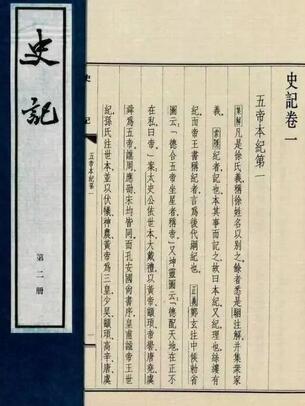 史記
第二册
史記卷一
五帝本紀第一
集解凡是徐氏義稱徐姓名以别之餘者悉是駰注解并集衆家
義索隱紀者記也本其事而記之故曰本紀又紀理也絲縷有
紀而帝王書稱紀者言爲後代綱紀也正義鄭玄注中候勑省
圖云德合五帝坐星者稱帝又坤靈圖云德配天地在正不
在私曰帝案太史公依世本大戴禮以黄帝顓頊帝嚳唐堯虞
舜爲五帝譙周應劭宋均皆同而孔安國尚書序皇甫謐帝王世
紀孫氏注世本並以伏犧神農黄帝爲三皇少昊顓頊高辛唐虞
史記
五帝本紀第一